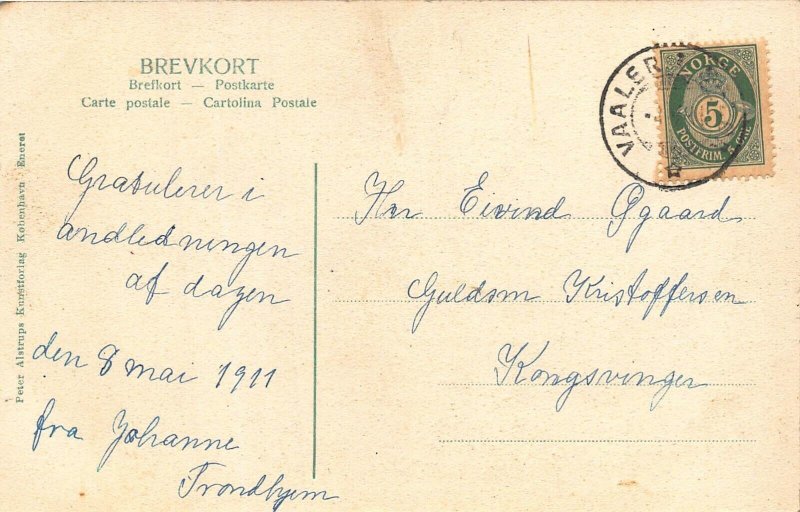 BREVKORT
Brefkort — Postkarte
Carte postale — Cartolina Postale
Peter Alstrups Kunstforlag København Eneret
Gratulerer i
andledningen
af dagen
den 8 mai 1911
fra Johanne
Trondhjem
VAALER
NORGE
5
POSTFRIM. 5 ØRE
Herr Eivind Øgaard
Guldsm Kristoffersen
Kongsvinger